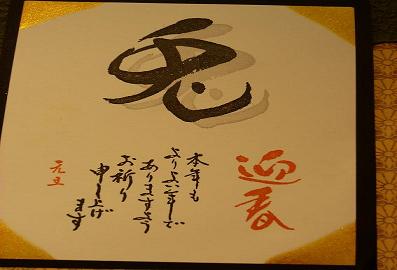 兎
迎春
本年も
よりよい年で
ありますよう
お祈り
申し上げ
ます
元旦